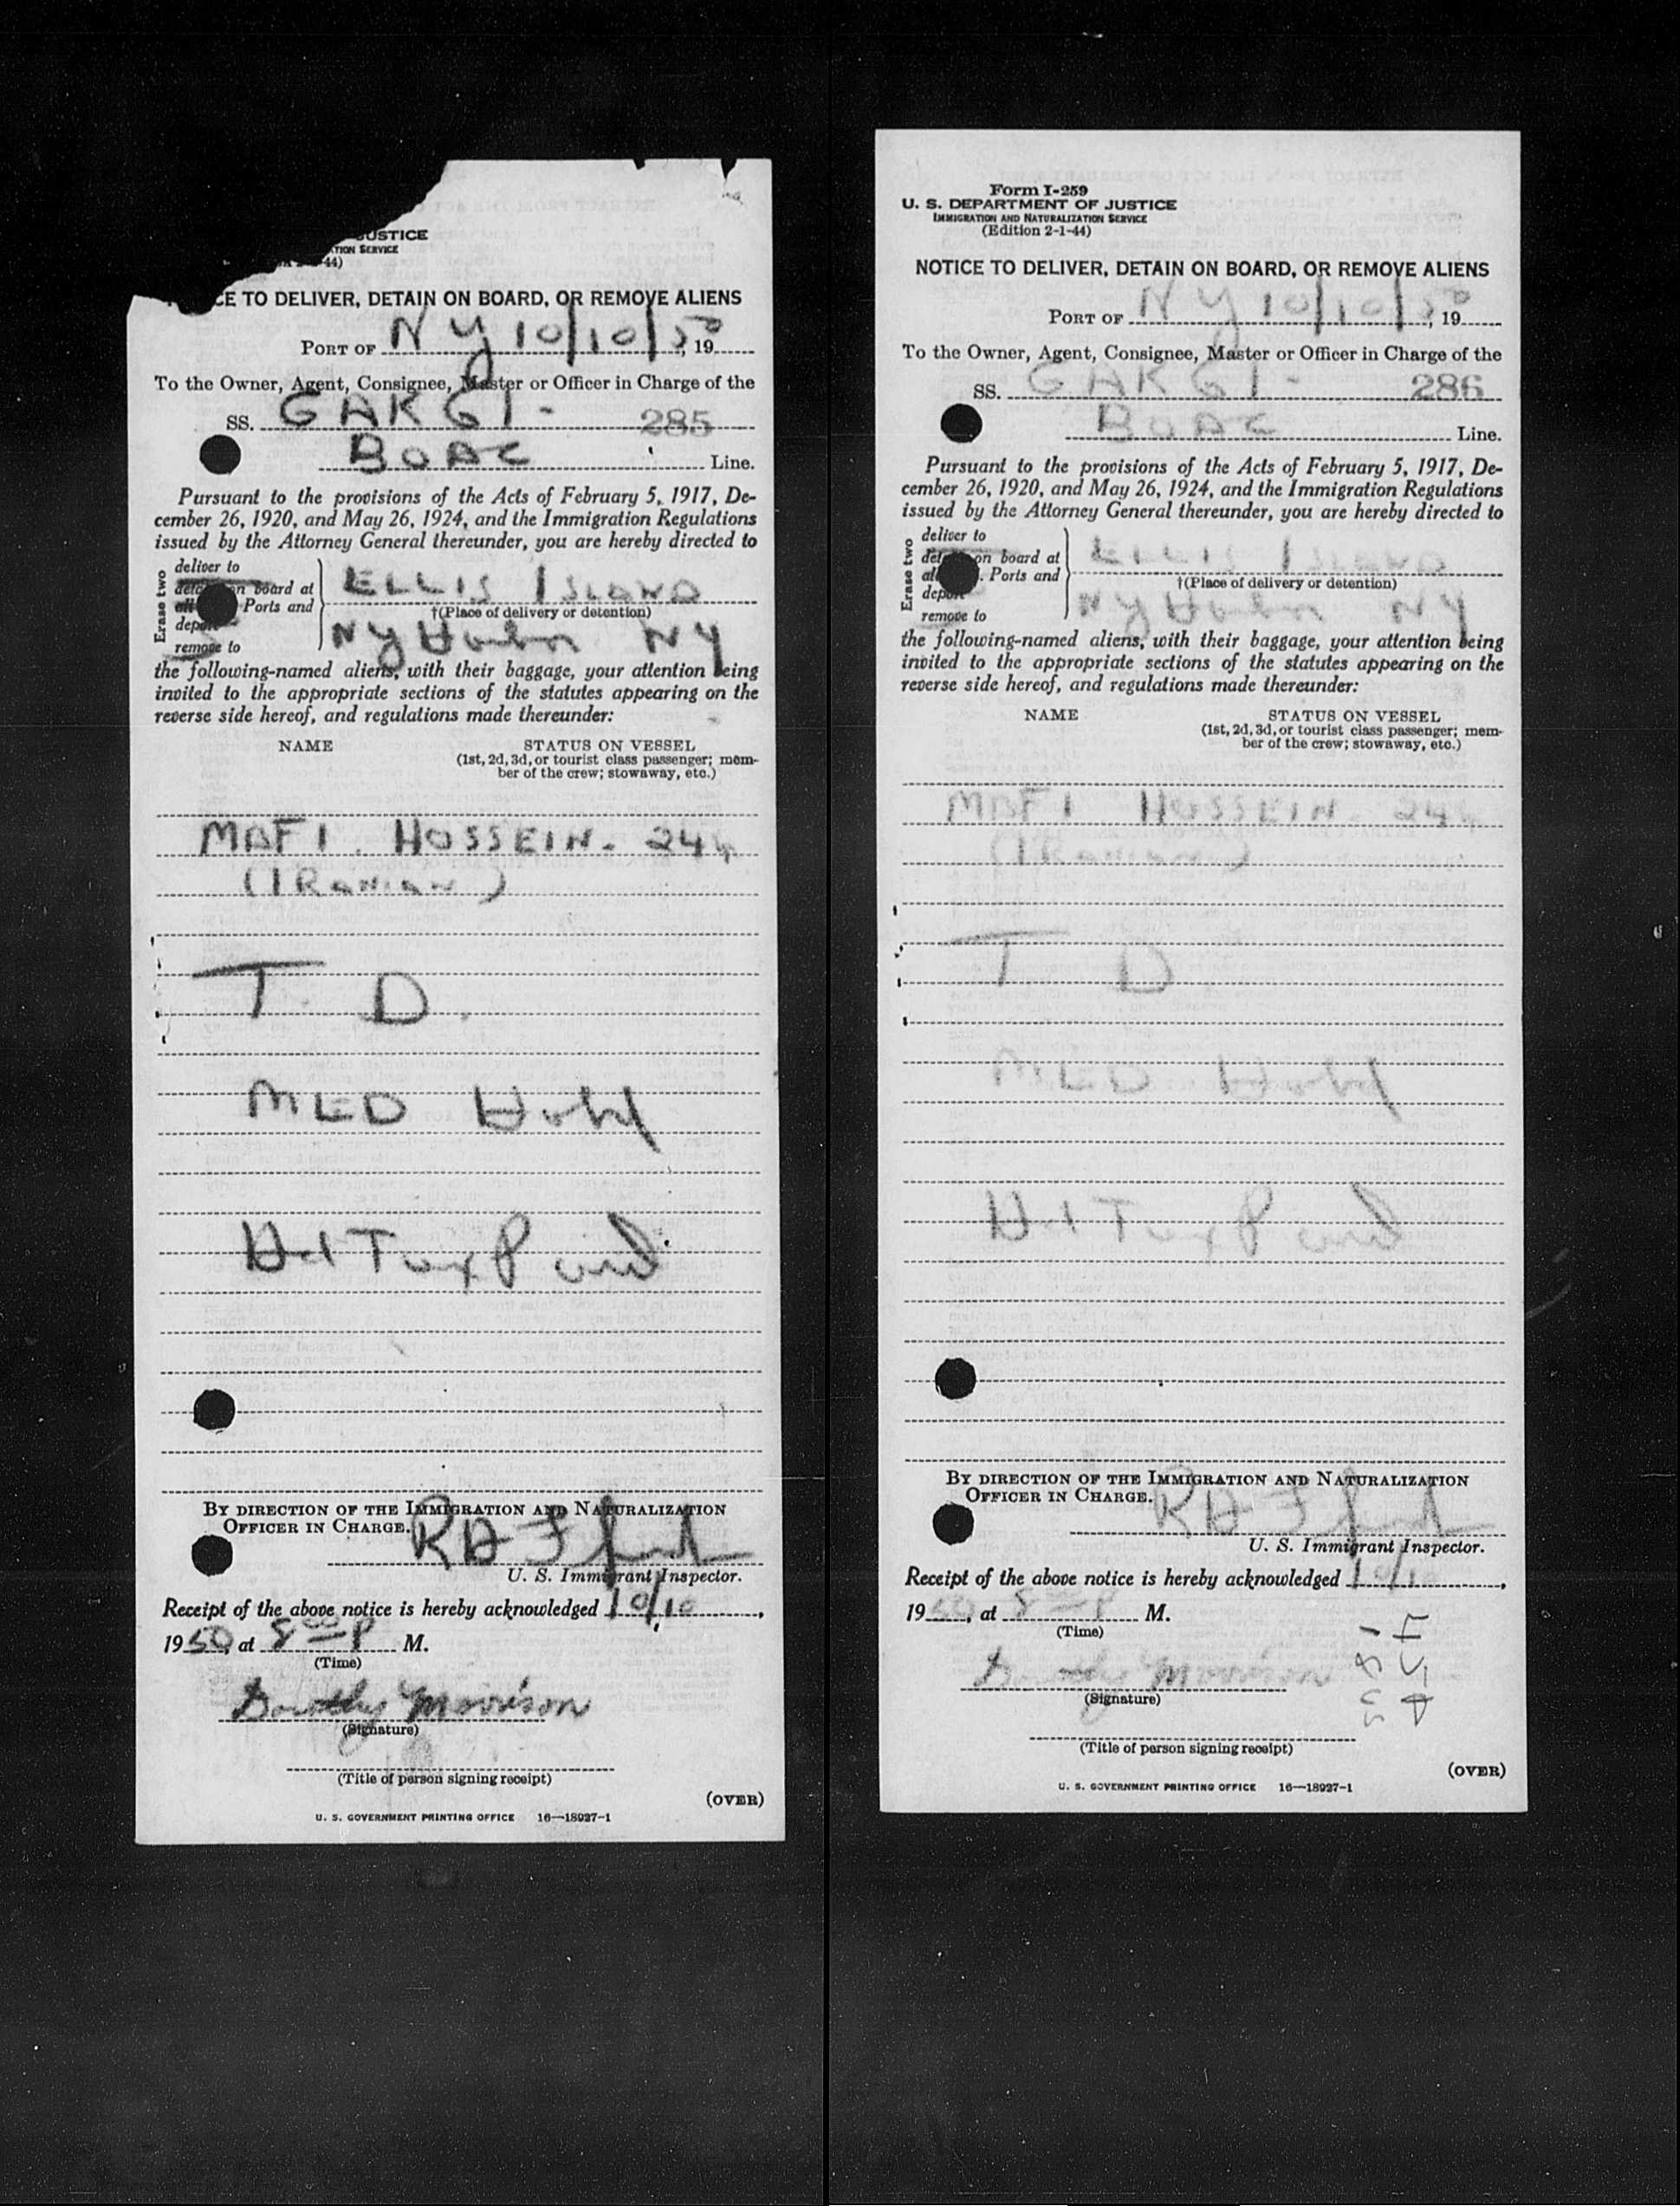 USTICE
TION SERVICE
44)
CE TO DELIVER, DETAIN ON BOARD, OR REMOVE ALIENS
PORT OF NY 10/10/50, 19
To the Owner, Agent, Consignee, Master or Officer in Charge of the
SS. GAKGI - 285
BOAC Line.
Pursuant to the provisions of the Acts of February 5, 1917, De-
cember 26, 1920, and May 26, 1924, and the Immigration Regulations
issued by the Attorney General thereunder, you are hereby directed to
Erase two
deliver to
on board at
Ports and
remove to
ELLIS ISLAND
†(Place of delivery or detention)
NY NY
the following-named aliens, with their baggage, your attention being
invited to the appropriate sections of the statutes appearing on the
reverse side hereof, and regulations made thereunder:
NAME STATUS ON VESSEL
(1st, 2d, 3d, or tourist class passenger; mem-
ber of the crew; stowaway, etc.)
MAFI. HOSSEIN. 24
(IRanian)
T. D.
MED Hold
Hd Tax Paid
BY DIRECTION OF THE IMMIGRATION AND NATURALIZATION
OFFICER IN CHARGE.
U. S. Immigrant Inspector.
Receipt of the above notice is hereby acknowledged 10/10,
1950, at 8 00 P M.
(Time)
Dorothy Morrison
(Signature)
(Title of person signing receipt)
(OVER)
U. S. GOVERNMENT PRINTING OFFICE 16—18927-1
Form I-259
U. S. DEPARTMENT OF JUSTICE
IMMIGRATION AND NATURALIZATION SERVICE
(Edition 2-1-44)
NOTICE TO DELIVER, DETAIN ON BOARD, OR REMOVE ALIENS
PORT OF NY 10/10/50, 19
To the Owner, Agent, Consignee, Master or Officer in Charge of the
SS. GAKGI - 286
BOAC Line.
Pursuant to the provisions of the Acts of February 5, 1917, De-
cember 26, 1920, and May 26, 1924, and the Immigration Regulations
issued by the Attorney General thereunder, you are hereby directed to
Erase two
deliver to
on board at
Ports and
remove to
ELLIS ISLAND
†(Place of delivery or detention)
NY NY
the following-named aliens, with their baggage, your attention being
invited to the appropriate sections of the statutes appearing on the
reverse side hereof, and regulations made thereunder:
NAME STATUS ON VESSEL
(1st, 2d, 3d, or tourist class passenger; mem-
ber of the crew; stowaway, etc.)
MAFI HOSSEIN. 24
(IRanian)
T D
MED Hold
Hd Tax Paid
BY DIRECTION OF THE IMMIGRATION AND NATURALIZATION
OFFICER IN CHARGE.
U. S. Immigrant Inspector.
Receipt of the above notice is hereby acknowledged 10/10,
1950, at 8 P M.
(Time)
Dorothy Morrison
(Signature)
(Title of person signing receipt)
(OVER)
U. S. GOVERNMENT PRINTING OFFICE 16—18927-1